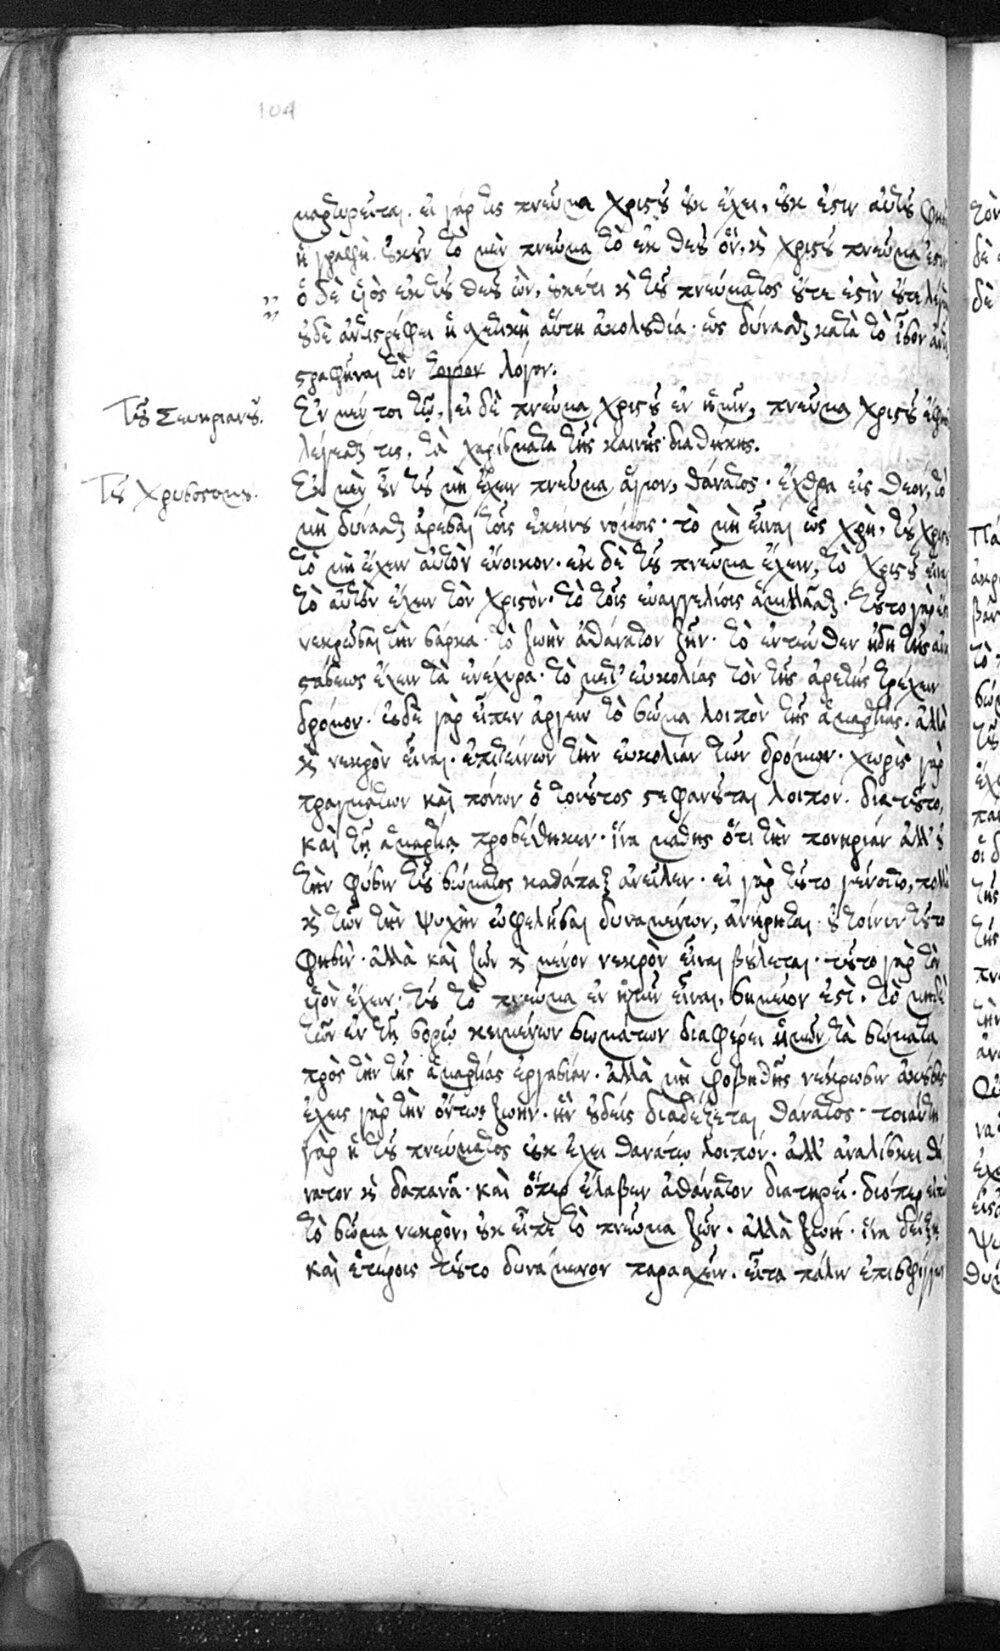 104
μαρτυρεῖται. εἰ γάρ τις πνεῦμα χριστοῦ οὐκ ἔχει, οὐκ ἔστιν αὐτοῦ φησιν
ἡ γραφὴ. οὐκοῦν τὸ μὲν πνεῦμα τὸ ἐκ θεοῦ ὄν, καὶ χριστοῦ πνεῦμα ἐστιν
ὁ δὲ υἱὸς ἐκ τοῦ θεοῦ ὢν, οὐκέτι καὶ τοῦ πνεύματος οὔτε ἐστὶν οὔτε λέγεται
οὐδὲ ἀντιστρέφει ἡ σχετικὴ αὕτη ἀκολουθία. ὡς δύνασθαι κατὰ τὸ ἴσον ἀντι
στραφῆναι τὸν λόγον.
Τοῦ Σευηριανοῦ.
Ἐν μέν τοι τῷ, εἰ δὲ πνεῦμα χριστοῦ ἐν ἡμῖν, πνεῦμα χριστοῦ
λέγεσθαι τις, τὰ χαρίσματα τῆς καινῆς διαθήκης.
Τοῦ Χρυσοστόμου.
Ἐκ μὲν οὖν τοῦ μὴ ἔχειν πνεῦμα ἅγιον, θάνατος. ἔχθρα εἰς θεον, τὸ
μὴ δύνασθαι ἀρέσαι τοῖς ἐκείνου νόμοις. τὸ μὴ εἶναι ὡς χρὴ, τοῦ χριστοῦ
τὸ μὴ ἔχειν αὐτὸν ἔνοικον. ἐκ δὲ τοῦ πνεῦμα ἔχειν, τὸ χριστοῦ εἶναι
τὸ αὐτὸν ἔχειν τὸν χριστὸν. τὸ τοῖς ἁμιλλᾶσθαι. τοῦτο γὰρ ἐστι
νεκρῶσαι τὴν σάρκα. τὸ ζωὴν ἀθάνατον ζῆν. τὸ ἐντεῦθεν ἤδη τῆς ἀνα
στάσεως ἔχειν τὰ ἐνέχυρα. τὸ μετ' εὐκολίας τὸν τῆς ἀρετῆς τρέχειν
δρόμον. οὐδὲ γὰρ εἶπεν ἀργεῖν τὸ σῶμα λοιπὸν τῆς ἁμαρτίας. ἀλλὰ
καὶ νεκρὸν εἶναι. ἐπιτείνων τὴν εὐκολίαν τῶν δρόμων. χωρὶς γὰρ
πραγμάτων καὶ πόνων ὁ τοιοῦτος στεφανοῦται λοιπόν. διατοῦτο,
καὶ τῇ ἁμαρτίᾳ προσέθηκεν. ἵνα μάθῃς ὅτι τὴν πονηρίαν ἀλλ' οὐ
τὴν φύσιν τοῦ σώματος καθάπαξ ἀνεῖλεν. εἰ γὰρ τοῦτο γένοιτο, πολλὰ
καὶ τῶν τὴν ψυχὴν ὠφελῆσαι δυναμένων, ἀνῄρηται. οὐ τοίνυν τοῦτο
φησὶν. ἀλλὰ καὶ ζῶν καὶ μένον νεκρὸν εἶναι βούλεται. τοῦτο γὰρ τὸν
υἱὸν ἔχειν. τοῦ τὸ πνεῦμα ἐν ἡμῖν εἶναι, σημεῖον ἐστὶ. τὸ μηδὲν
τῶν ἐν τῇ σορῷ κειμένων σωμάτων διαφέρει ἡμῶν τὰ σώματα
πρὸς τὴν τῆς ἁμαρτίας ἐργασίαν. ἀλλὰ μὴ φοβηθῇς νέκρωσιν ἀκούσας
ἔχεις γὰρ τὴν ὄντως ζωὴν. ἣν οὐδεὶς διαδέξεται θάνατος. τοιαύτη
γὰρ ἡ τοῦ πνεύματος οὐκ ἔχει θανάτῳ λοιπόν. ἀλλ' ἀναλίσκει θά
νατον καὶ δαπανᾷ. καὶ ὅπερ ἔλαβεν ἀθάνατον διατηρεῖ. διόπερ εἰπὼν
τὸ σῶμα νεκρὸν, οὐκ εἶπε τὸ πνεῦμα ζῶν. ἀλλὰ ζωὴ. ἵνα δείξῃ
καὶ ἑτέροις τοῦτο δυνάμενον παρασχεῖν. εἶτα πάλιν